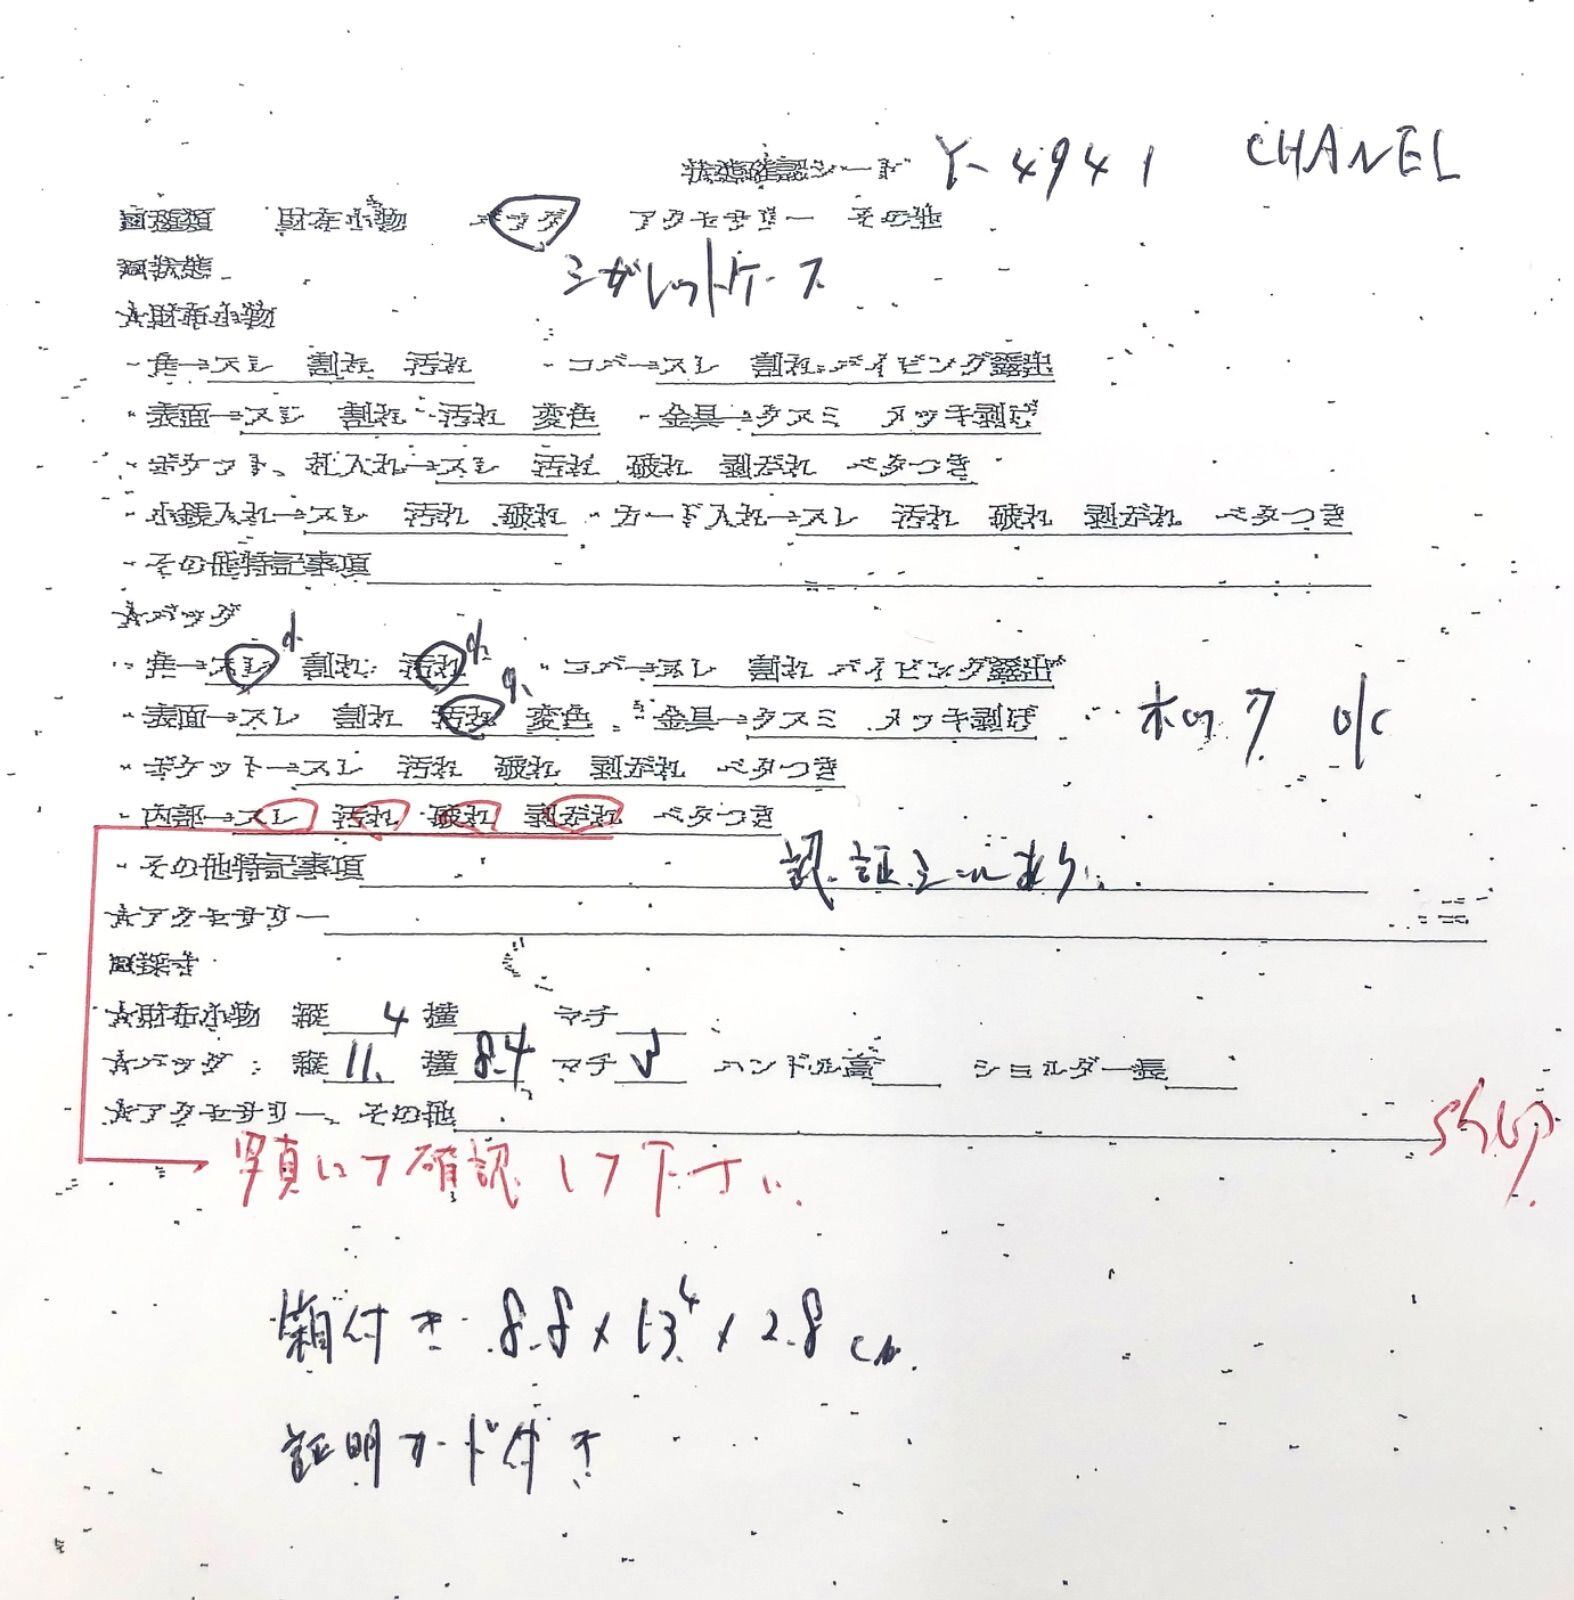 状態確認シート Y-4941 CHANEL
■種類 財布小物 バッグ アクセサリー その他
■状態 シガレットケース
☆財布小物
・角→スレ 割れ 汚れ ・コバ→スレ 割れ パイピング露出
・表面→スレ 割れ 汚れ 変色 ・金具→クスミ メッキ剥げ
・ポケット、札入れ→スレ 汚れ 破れ 剥がれ ベタつき
・小銭入れ→スレ 汚れ 破れ ・カード入れ→スレ 汚れ 破れ 剥がれ ベタつき
・その他特記事項
☆バッグ
・角→スレ 割れ 汚れ ・コバ→スレ 割れ パイピング露出
・表面→スレ 割れ 汚れ 変色 ・金具→クスミ メッキ剥げ ホック o/c
・ポケット→スレ 汚れ 破れ 剥がれ ベタつき
・内部→スレ 汚れ 破れ 剥がれ ベタつき
・その他特記事項 認証シールあり
☆アクセサリー
■採寸
☆財布小物 縦 4 横 マチ
☆バッグ 縦 11. 横 8.4 マチ ハンドル高 ショルダー長
☆アクセサリー、その他
写真にて確認して下さい。
箱付き 8.8×13.4×2.8cm.
証明カード付き